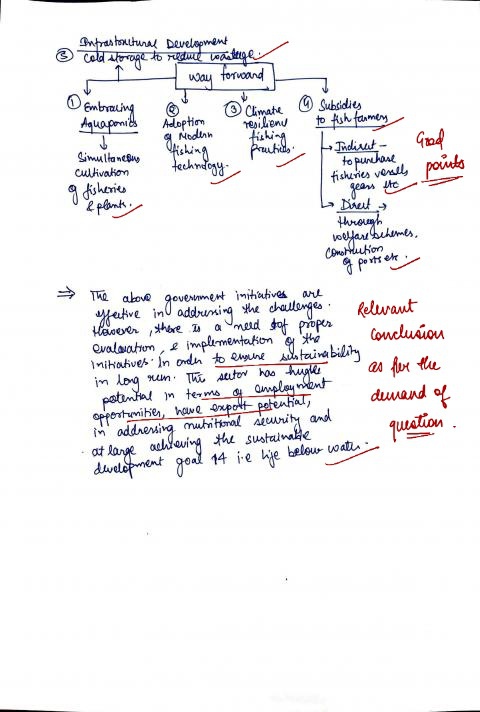 Infrastructural Development
⑤ Cold storage to reduce wastage.
Way forward
① Embracing Aquaponics
Simultaneous
cultivation
of fisheries
& plants.
② Adoption
of Modern
fishing
technology.
③ Climate
resilient
fishing
practices.
④ Subsidies
to fish farmers
→ Indirect -
to purchase
fisheries vessels
gears etc
→ Direct →
through
welfare schemes,
construction
of ports etc.
Good
points
⇒ The above government initiatives are
effective in addressing the challenges.
However, there is a need of proper
evaluation, & implementation of the
initiatives. In order to ensure sustainability
in long run. The sector has hughe
potential in terms of employment
opportunities, have export potential,
in addressing nutritional security and
at large achieving the sustainable
development goal 14 i.e life below water.
Relevant
conclusion
as per the
demand of
question.